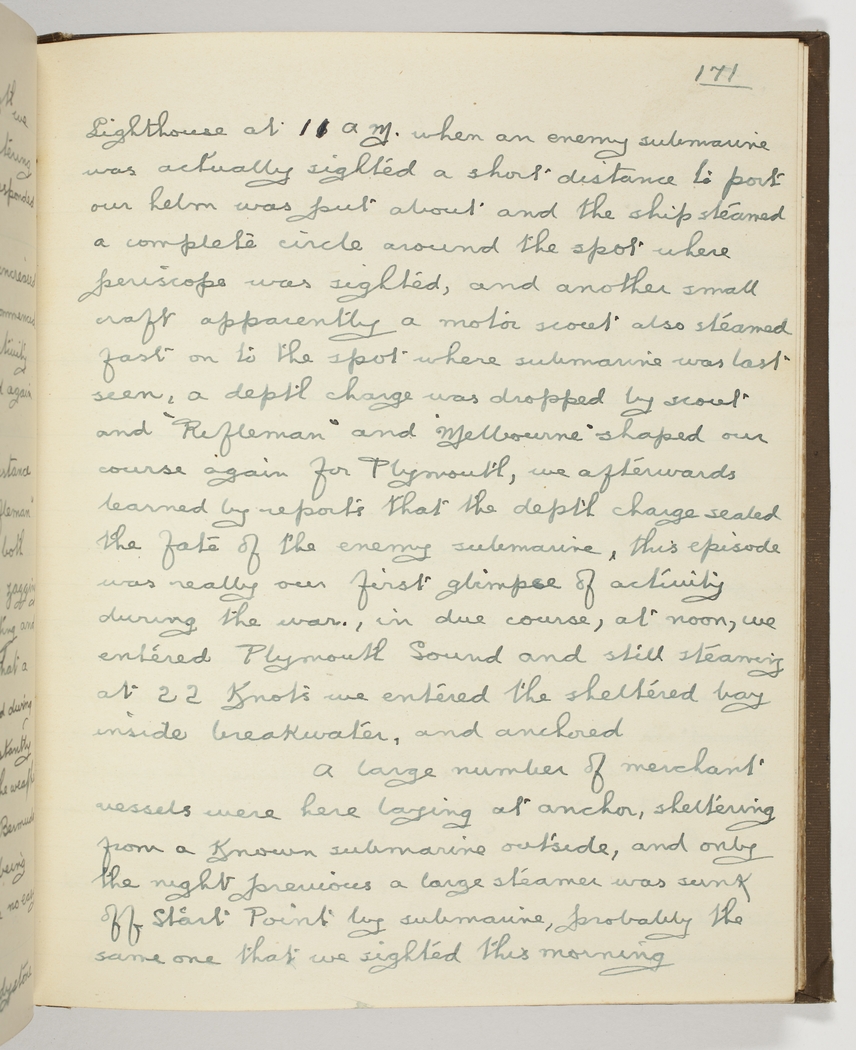 171
Lighthouse at 11 a m. when an enemy submarine
was actually sighted a short distance to port
our helm was put about and the ship steamed
a complete circle around the spot where
periscope was sighted, and another small
craft apparently a motor scout also steamed
fast on to the spot where submarine was last
seen, a depth charge was dropped by scout
and "Rifleman" and "Melbourne" shaped our
course again for Plymouth, we afterwards
learned by reports that the depth charge sealed
the fate of the enemy submarine, this episode
was really our first glimpse of activity
during the war., in due course, at noon, we
entered Plymouth Sound and still steaming
at 22 Knots we entered the sheltered bay
inside breakwater, and anchored
A large number of merchant
vessels were here laying at anchor, sheltering
from a Known submarine outside, and only
the night previous a large steamer was sunk
off Start Point by submarine, probably the
same one that we sighted this morning